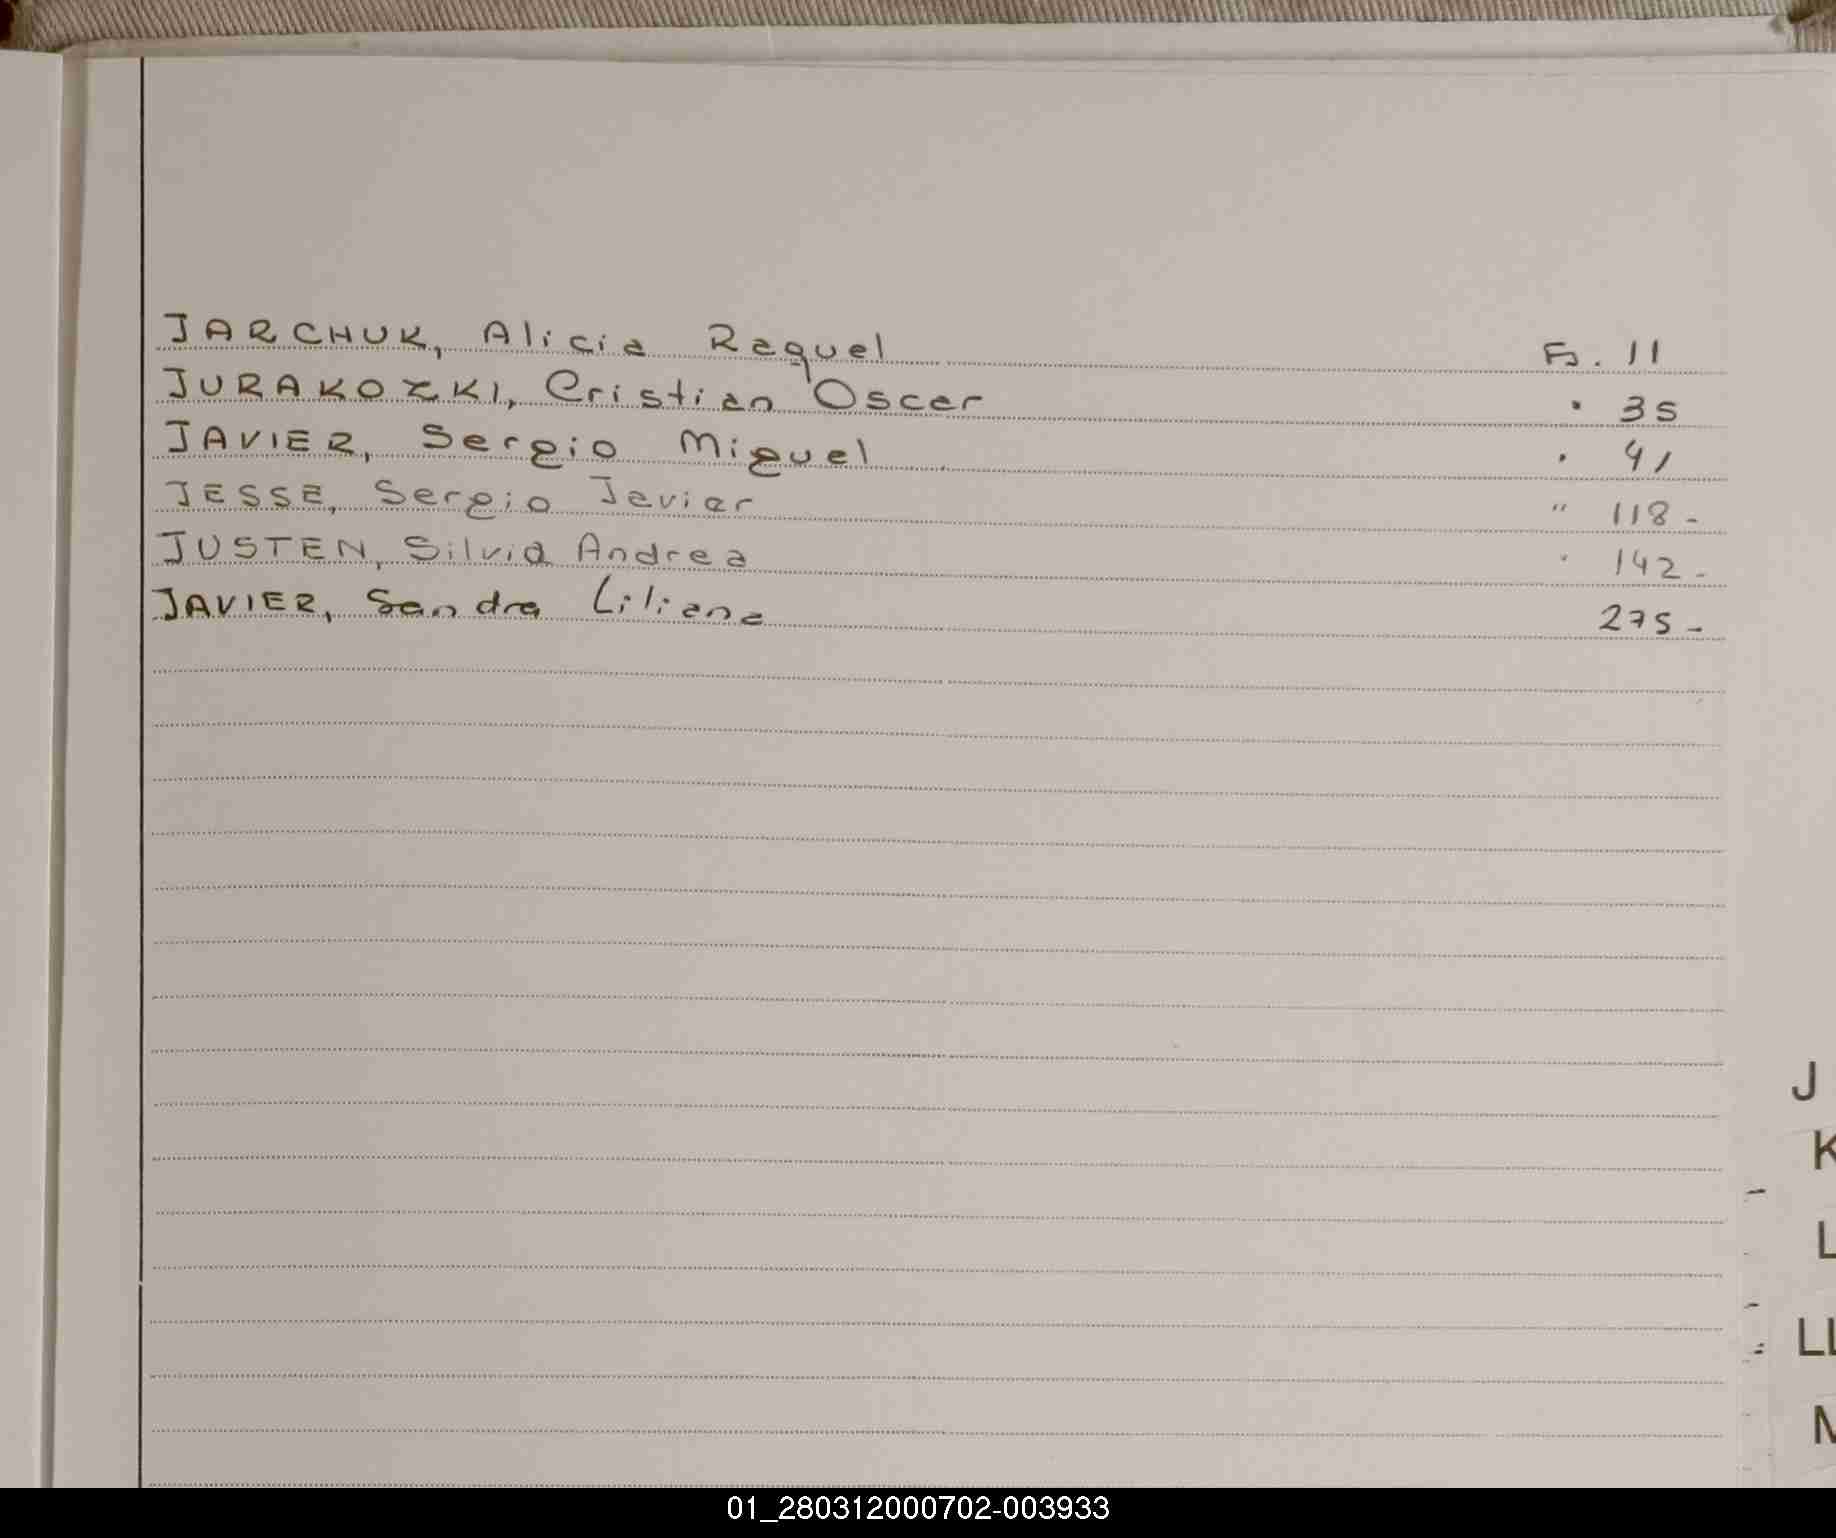 JARCHUK, Alicia Raquel Fs. 11
JURAKOZKI, Cristian Oscar " 35
JAVIER, Sergio Miguel " 41
JESSE, Sergio Javier " 118-
JUSTEN, Silvia Andrea " 142-
JAVIER, Sandra Liliana 275-
J
K
L
LL
M
01_280312000702-003933